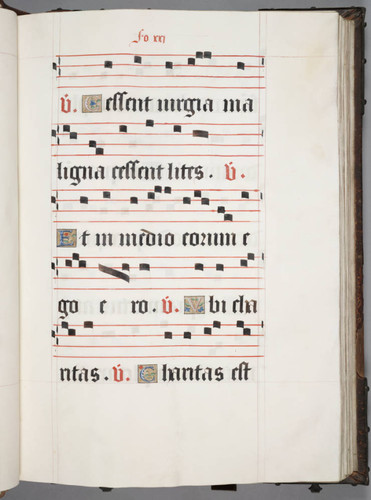 fo xxi
v. Cessent iurgia ma
ligna cessent lites. v.
Et in medio eorum e
go e ro. v. Vbi cha
ritas. v. Charitas est